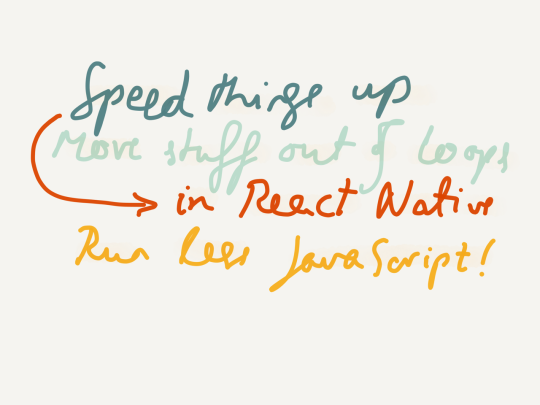 Speed things up
Move stuff out of loops
in React Native
Run less JavaScript!